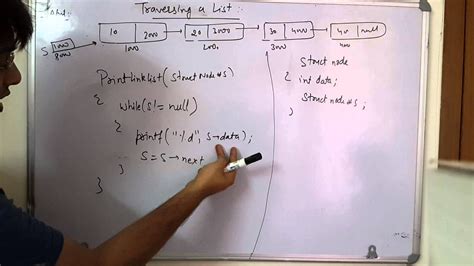 Traversing a List:
S 1000 10 2000 20 3000 30 4000 40 null
1000 2000 3000
PrintLinkList (Struct Node *S)
{
while(S != null)
{
printf("%d", S→data);
S = S→next
}
}
Struct node
{ int data;
Struct node * S;
}